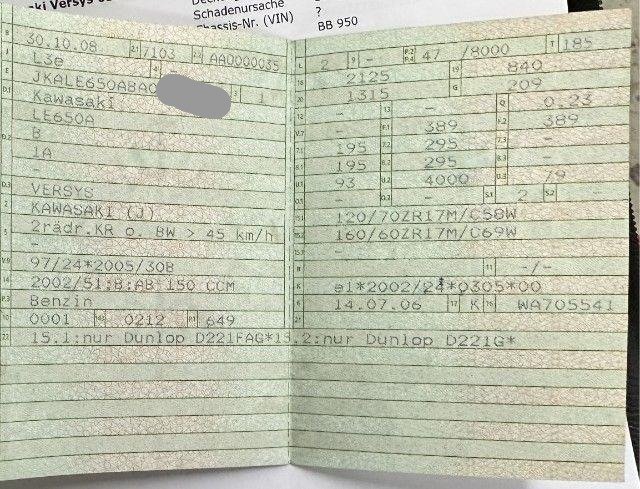 ki Versys
Schadenursache
Chassis-Nr. (VIN)
?
BB 950
B 30.10.08 2.1 7103 2.2 AA0000035
J L3e 4
E JKALE650A8A0 3 1
D.1 Kawasaki
LE650A
D.2 B
1A
-
D.3 VERSYS
2 KAWASAKI (J)
5 2rädr.KR o. BW > 45 km/h
-
V.9 97/24*2005/30B
14 2002/51:B:AB 150 CCM
P.3 Benzin
10 0001 14.1 0212 P.1 649
22 15.1:nur Dunlop D221FAG*15.2:nur Dunlop D221G*
L 2 9 - P.2 P.4 47 /8000 T 185
18 2125 19 840
20 1315 G 209
12 - 13 - Q 0.23
V.7 - F.1 389 F.2 389
7.1 195 7.2 295 7.3 -
8.1 195 8.2 295 8.3 -
U.1 93 U.2 4000 U.3 79
O.1 - O.2 - S.1 2 S.2 -
15.1 120/70ZR17M/C58W
15.2 160/60ZR17M/C69W
15.3 -
R 11 -/-
K e1*2002/24*0305*00
6 14.07.06 17 K 16 WA705541
21